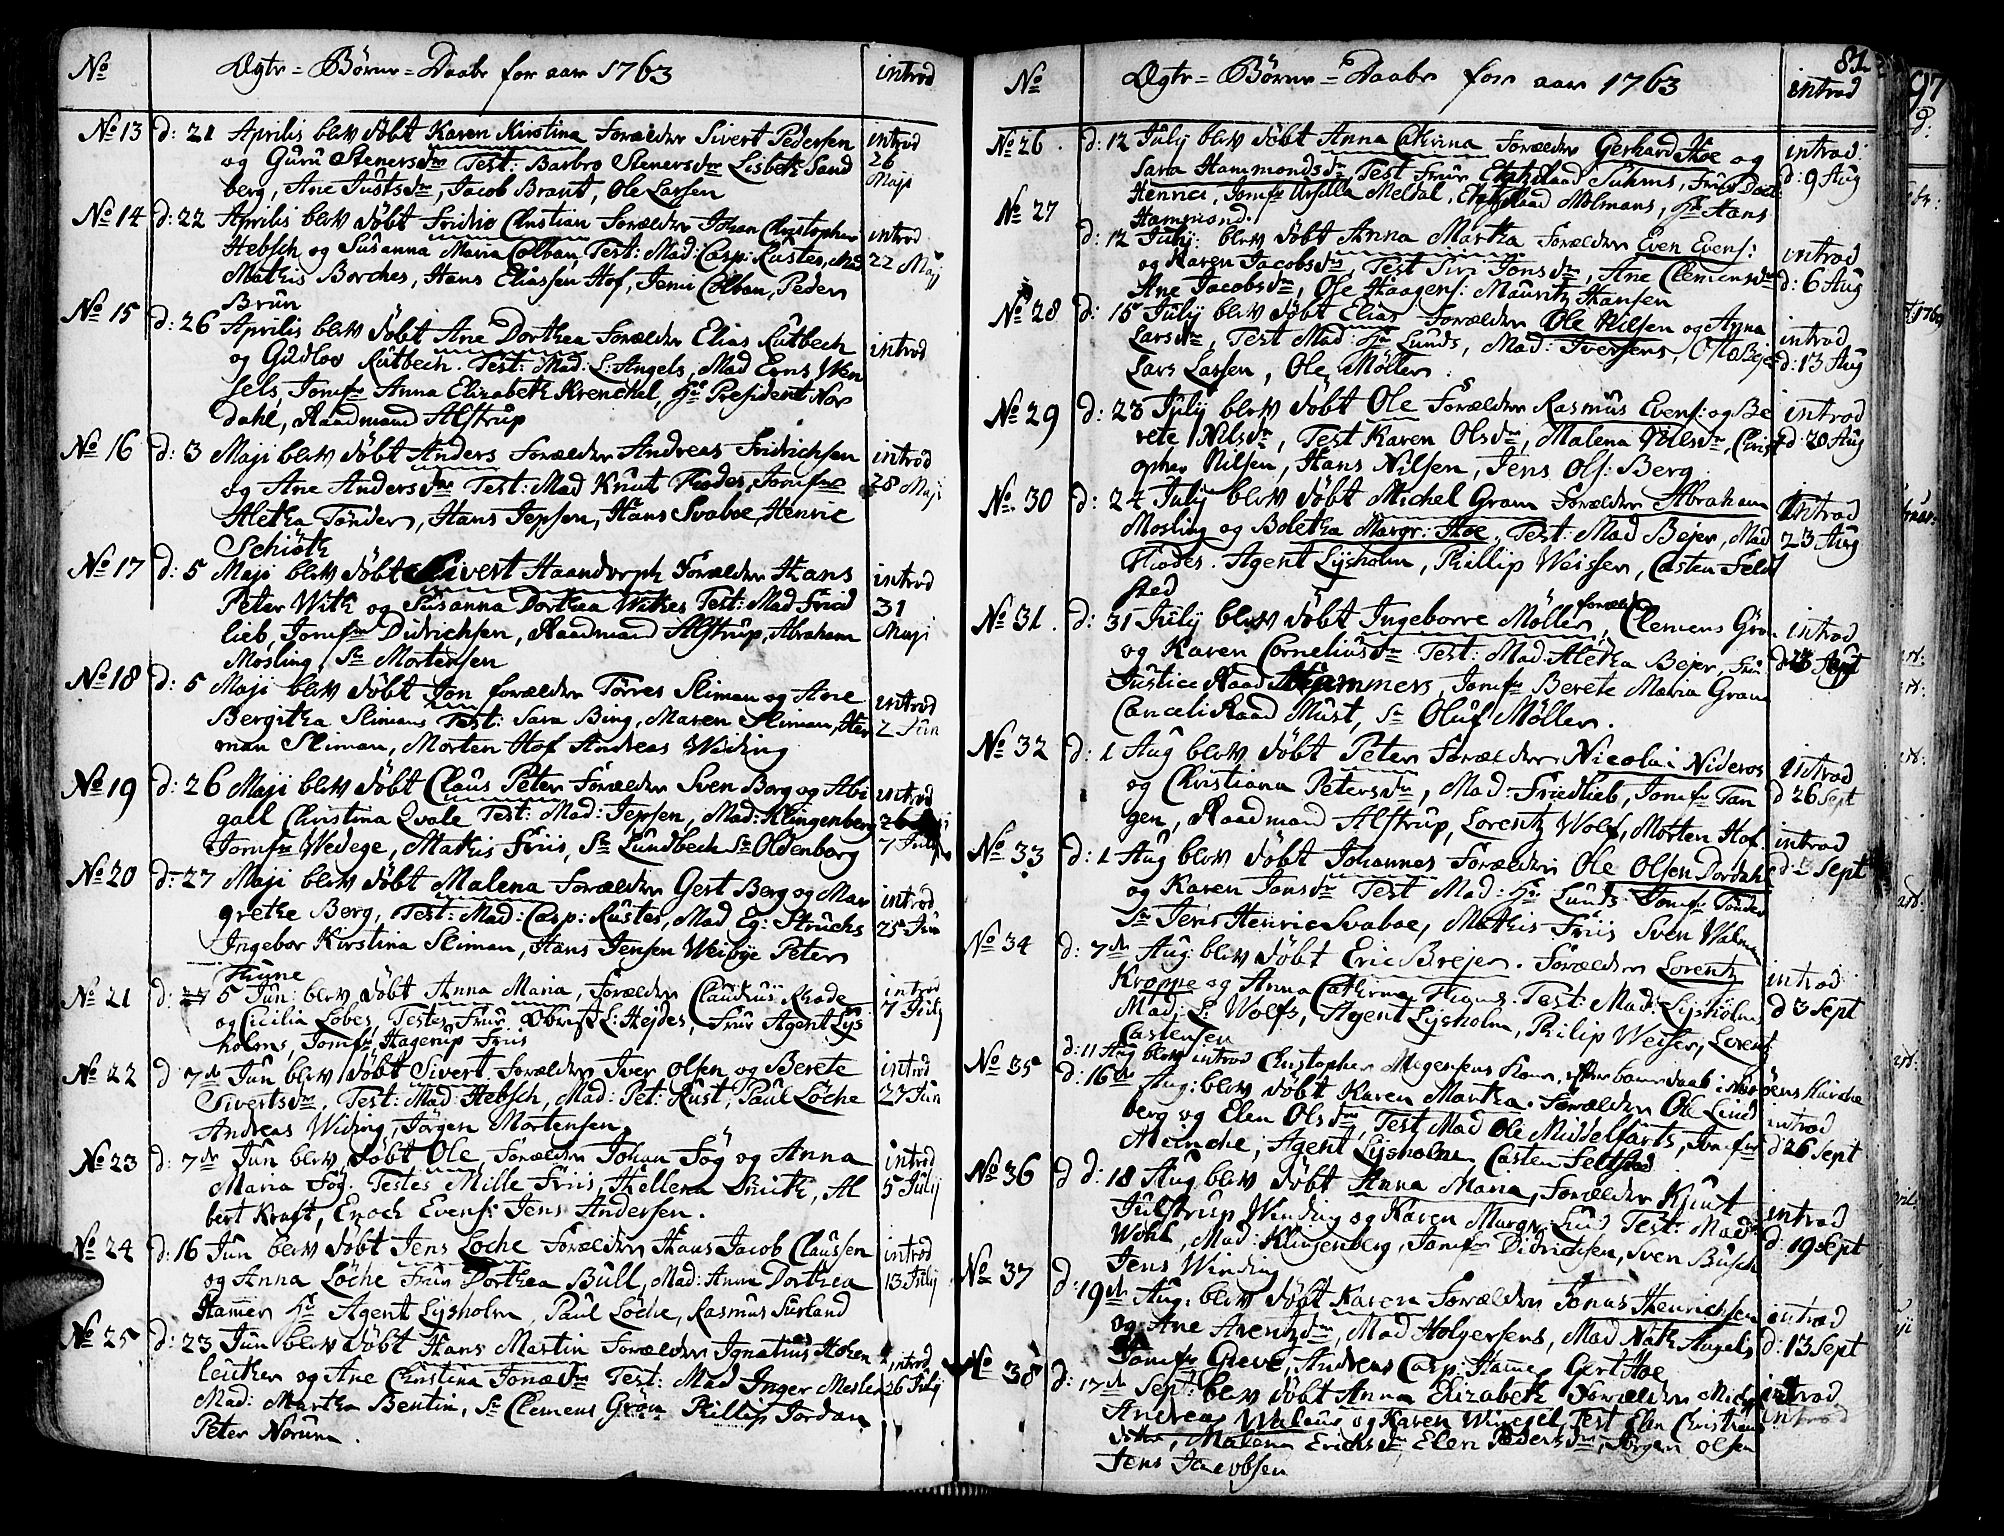 No Ægte-Børne-Daabe for aar 1763 introd
No 13 d: 21 Aprilis blev døbt Karen Kirstina Forældre Sivert Pedersen introd
og Guru Stenersdr Test: Barbro Stenersdr Lisbeth Sand 26
berg, Ane Justsdr, Jacob Braut, Ole Larsen Maji
No 14 d: 22 Aprilis blev døbt Fridrio Christian Forældre Johan Christopher introd
Hebsch og Susanna Maria Colban Test: Mad: Casp: Rustes, Mad 22 Maij
Mathis Borches, Hans Eliassen Hof, Jemi Colban, Peder
Brun
No 15 d: 26 Aprilis blev døbt Ane Dorthea Forældre Elias Rutbech introd
og Gudlov Rutbech. Test: Mad: L: Angels, Mad Erns Wen
sels, Jomfr Anna Elizabeth Krenckel, Hr President Nor
dahl, Raadmand Alstrup
No 16 d: 3 Maji blev døbt Anders Forældre Andreas Fridrichsen introd
og Ane Andersdr Test: Mad Knut Flodes, Jomfru 28 Maji
Aletha Tønder, Hans Jepsen, Hans Svaboe, Henric
Schiöth
No 17 d: 5 Maji blev døbt Sivert Haandorph Forældre Hans introd
Peter With og Susanna Dorthea Withes Test: Mad Fried 31
lieb, Jomfr Didrichsen, Raadmand Alstrup, Abraham Maji
Mosling, Sr Mortensen
No 18 d: 5 Maji blev døbt Jon forældre Tørres Sliman og Ane introd
Bergitha Slimans Test: Sara Bing, Maren Sliman, Her 2 Jun
man Sliman, Morten Hof Andreas Wiiding
No 19 d: 26 Maji blev døbt Claus Peter Forældre Sven Borg og Abi introd
gall Christina Qvale Test: Mad: Jepsen, Mad: Klingenberg
Jomfr Wedege, Mathis Friis, Sr Lundbech Sr Oldenborg 7 July
No 20 d: 27 Maji blev døbt Malena Forældre Gert Berg og Mar introd
grethe Berg, Test: Mad: Casp: Rustes, Mad Eg: Struchs 25 Jun
Ingebor Kirstina Sliman, Hans Jensen Weiöye Peter
Thune
No 21 d: 5 Jun: blev døbt Anna Maria, Forældre Claudius Rhode introd
og Cicilia Lobes, Testes Frue Obrist L: Hejdes, Frue Agent Lys 7 July
holms, Jomfr Hagerup Friis
No 22 d 7de Jun blev døbt Sivert Forældre Iver Olsen og Berete introd
Sivertsdr, Test: Mad: Hebsch, Mad: Pet: Rust, Paul Löche 27 Jun
Andreas Widing, Jörgen Mortensen
No 23 d: 7de Jun blev døbt Ole Forældre Johan Fög og Anna introd
Maria Fög. Testes Mille Friis, Hellena Smith, Al 5 July
bert Kraft, Enoch Evens: Jens Andersen.
No 24 d: 16 Jun blev døbt Jens Løche Forældre Hans Jacob Claussen introd
og Anna Løche Frue Dorthea Bull, Mad: Anna Dorthea 13 July
Hammer Hr Agent Lysholm, Paul Løche, Rasmus Surland
No 25 d: 23 Jun blev døbt Hans Martin Forældre Ignatius Hohen introd
leuther og Ane Christina Jonsdr Test: Mad Inger Mesler 26 July
Mad: Martha Bentin, Sr Clemens Grøn Phillip Jordan
Peter Norum.
81
No Ægte-Børne-Daabe for aar 1763 introd
No 26. d: 12 July blev døbt Anna Cathrina Forældre Gerhard Hoe og introd:
Sara Hammondsdr Test Frue Etatzraad Suhms, Frue Doct d: 9 Aug
Henrici, Jomfr Ursilla Meldal, Etatzraad Molmans, Hr Hans
Hammond.
No 27 d: 12 July: blev døbt Anna Martha Forældre Even Evens: introd
og Karen Jacobsdr, Test Siri Jonsdr, Ane Clemensdr d: 6 Aug
Ane Jacobsdr, Ole Haagens: Mauritz Hansen
No 28 d: 15 July blev døbt Elias Forældre Ole Nilsen og Anna introd
Larsdr, Test Mad: Hr Lunds, Mad: Iversens, Otto Bejer d: 13 Aug
Lars Lassen, Ole Møller.
No 29 d: 23 July blev døbt Ole Forældre Rasmus Evens: og Be introd
rete Nilsdr, Test Karen Olsdr, Malena Nilsdr, Christ d: 20 Aug
opher Nilsen, Hans Nilsen, Jens Ols: Berg
No 30 d: 24 July blev døbt Michel Gram Forældre Abraham introd
Mosling og Boletha Margr: Hoe, Test: Mad Bejer, Mad 23 Aug
Flodes. Agent Lysholm, Phillip Weisser, Casten Feldt
sted
No 31. d: 31 July blev døbt Ingeborre Møller, forældre Clemens Grøn introd
og Karen Corneliusdr Test: Mad: Aletha Bejer, Frue
Justice Raad Hammers, Jomfr Berete Maria Gram
Canceli Raad Must, Sr Oluf Møller.
No 32 d: 1 Aug blev døbt Peter Forældre Nicolai Nideros introd
og Christiana Petersdr, Mad: Friedlieb, Jomfr Tan d 26 Sept
gen, Raadmand Alstrup, Lorentz Wolf, Morten Hof.
No 33 d: 1 Aug blev døbt Johannes Forældre Ole Olsen Dordahl introd
og Karen Jonsdr Test Mad: Hr Lunds Jomfr Tønder d 13 Sept
Sr Jens Henric Svaboe, Mathis Friis Sven Walman
No 34 d: 7de Aug: blev døbt Eric Brejer. Forældre Lorentz introd:
Kroppe og Anna Cathrina Thams. Test: Mad: Lysholms d 3 Sept
Mad: L: Wolfs, Agent Lysholm, Philip Weiser, Lorentz
Castensen
d: 11 Aug blev introd Christopher Mogensens Kone, efter barne daab i
No 35 d: 16de Aug: blev døbt Karen Martha. Forældre Ole Lund introd
berg og Elen Olsdr, Test Mad Ole Middelfarts, Jomfr d 26 Sept
Meinche, Agent Lysholm, Casten Feltsted
No 36 d d: 18 Aug blev døbt Anna Maria, Forældre Knut introd
Julstrup Winding og Karen Margr: Lund Test: Mad d: 19 Sept
Wohl, Mad: Klingenberg, Jomfr Didrichsen, Sven Busch
Jens Winding
No 37 d: 19de Aug: blev døbt Karen Forældre Jonas Henrichsen introd
og Ane Arentzdr, Mad Holgersens, Mad Nath Angels d: 13 Sept
Jomfr Greve, Andreas Casp: Hamme, Gert Hoe
No 38 d: 17de Sept: blev døbt Anna Elizabeth Forældre introd
Andreas Waleur og Karen Winegel, Test Elen Christians introd
dotter, Malena Erichsdr Elen Pedersdr, Jörgen Olsen
Jens Jacobsen
97